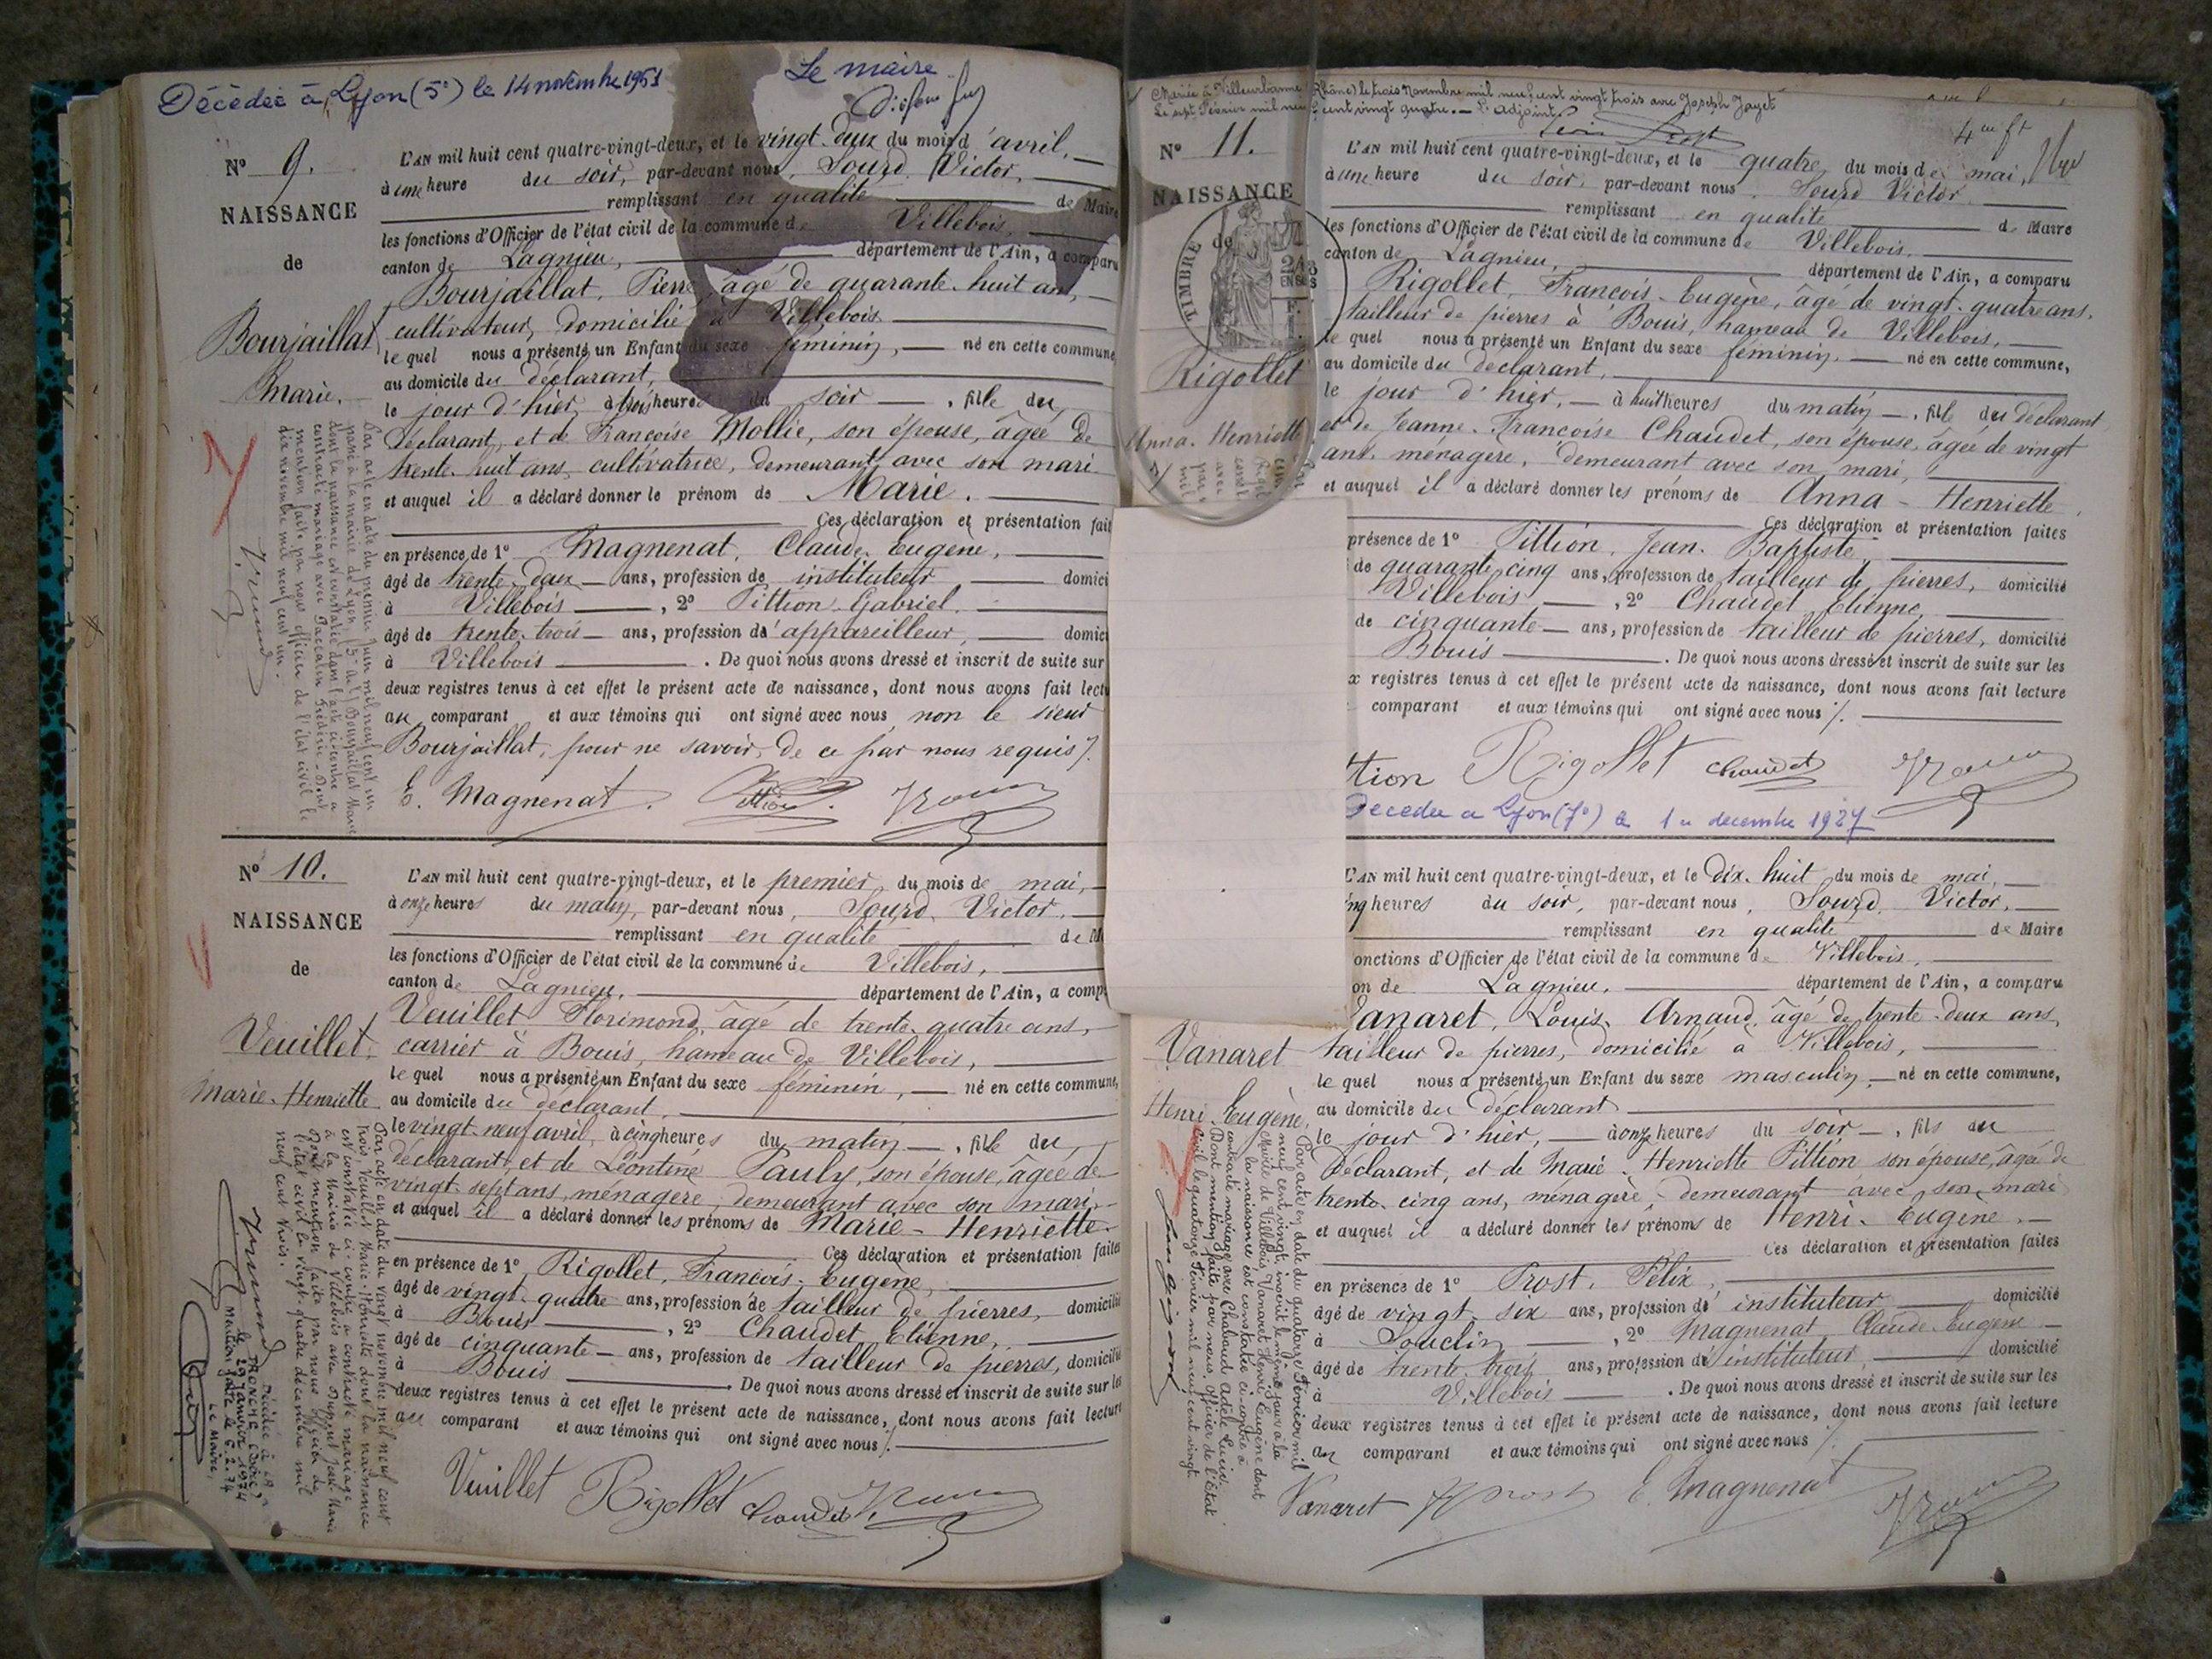 Décédée à Lyon (5e) le 14 novembre 1951
Le maire
No 9.
NAISSANCE
de
Bourjaillat
Marie.
L'AN mil huit cent quatre-vingt-deux, et le vingt-deux du mois d'avril,
à une heure du soir, par-devant nous, Sourd, Victor,
remplissant en qualité de Maire
les fonctions d'Officier de l'état civil de la commune de Villebois,
canton de Lagnieu, département de l'Ain, a comparu
Bourjaillat, Pierre, âgé de quarante-huit ans,
cultivateur, domicilié à Villebois
lequel nous a présenté un Enfant du sexe féminin, né en cette commune
au domicile du déclarant,
le jour d'hier, à trois heures du soir, fille du
déclarant, et de Françoise Mollie, son épouse, âgée de
trente-huit ans, cultivatrice, demeurant avec son mari
et auquel il a déclaré donner le prénom de Marie.
Ces déclaration et présentation fait
en présence de 1o Magnenat, Claude-Eugène,
âgé de trente-deux ans, profession de instituteur domici
à Villebois, 2o Pittion Gabriel.
âgé de trente-trois ans, profession d'appareilleur, domici
à Villebois. De quoi nous avons dressé et inscrit de suite sur
deux registres tenus à cet effet le présent acte de naissance, dont nous avons fait lectu
au comparant et aux témoins qui ont signé avec nous, non le sieur
Bourjaillat, pour ne savoir, de ce par nous requis /.
E. Magnenat. Pittion.
Par acte en date du premier Juin mil neuf cent un
passé à la mairie de Lyon (5e Art) Bourjaillat Marie
dont la naissance est constatée dans l'acte ci-contre a
contracté mariage avec Paccalin Frédéric. Dont
mention faite par nous officier de l'état civil le
dix novembre mil neuf cent un.
No 10.
NAISSANCE
de
Veuillet,
Marie-Henriette
L'AN mil huit cent quatre-vingt-deux, et le premier du mois de mai,
à onze heures du matin, par-devant nous, Sourd, Victor,
remplissant en qualité de M
les fonctions d'Officier de l'état civil de la commune de Villebois,
canton de Lagnieu, département de l'Ain, a comp
Veuillet Florimond, âgé de trente-quatre ans,
carrier à Bouis, hameau de Villebois,
lequel nous a présenté un Enfant du sexe féminin, né en cette commune,
au domicile du déclarant,
le vingt-neuf avril, à cinq heures du matin, fille du
déclarant, et de Léontine Pauly, son épouse, âgée de
vingt-sept ans, ménagère, demeurant avec son mari,
et auquel il a déclaré donner les prénoms de Marie-Henriette.
Ces déclaration et présentation faites
en présence de 1o Rigollet, François-Eugène,
âgé de vingt-quatre ans, profession de tailleur de pierres, domicilié
à Bouis, 2o Chaudet, Etienne,
âgé de cinquante ans, profession de tailleur de pierres, domicilié
à Bouis. De quoi nous avons dressé et inscrit de suite sur les
deux registres tenus à cet effet le présent acte de naissance, dont nous avons fait lecture
au comparant et aux témoins qui ont signé avec nous /.
Veuillet Rigollet Chaudet
Par acte en date du vingt novembre mil neuf cent
trois, Veuillet Marie-Henriette dont la naissance
est constatée ci-contre a contracté mariage
à la Mairie de Villebois avec Jean Marie
Dont mention faite par nous officier de
l'état civil le vingt-quatre décembre mil
neuf cent trois.
Décédée à LA
TRONCHE (Isère)
le 29 Janvier 1974
Mention faite le 6.2.74
Le Maire,
Mariée à Villeurbanne (Rhône) le trois Novembre mil neuf cent vingt trois avec Joseph Jayet
Le sept Février mil neuf cent vingt quatre. L'adjoint
No 11.
NAISSANCE
de
TIMBRE
Rigollet
Anna-Henriette
L'AN mil huit cent quatre-vingt-deux, et le quatre du mois de mai,
à une heure du soir, par-devant nous, Sourd Victor
remplissant en qualité de Maire
les fonctions d'Officier de l'état civil de la commune de Villebois,
canton de Lagnieu, département de l'Ain, a comparu
Rigollet, François-Eugène, âgé de vingt-quatre ans,
tailleur de pierres à Bouis, hameau de Villebois,
lequel nous a présenté un Enfant du sexe féminin, né en cette commune,
au domicile du déclarant,
le jour d'hier, à huit heures du matin, fille du déclarant
et de Jeanne-Françoise Chaudet, son épouse, âgée de vingt
ans, ménagère, demeurant avec son mari,
et auquel il a déclaré donner les prénoms de Anna-Henriette
Ces déclaration et présentation faites
présence de 1o Pittion, Jean-Baptiste,
de quarante-cinq ans, profession de tailleur de pierres, domicilié
Villebois, 2o Chaudet, Etienne,
de cinquante ans, profession de tailleur de pierres, domicilié
Bouis. De quoi nous avons dressé et inscrit de suite sur les
x registres tenus à cet effet le présent acte de naissance, dont nous avons fait lecture
comparant et aux témoins qui ont signé avec nous /.
tion Rigollet Chaudet
Decedee a Lyon (7e) le 1er decembre 1927
L'AN mil huit cent quatre-vingt-deux, et le dix-huit du mois de mai,
nq heures du soir, par-devant nous, Sourd, Victor,
remplissant en qualité de Maire
onctions d'Officier de l'état civil de la commune de Villebois,
on de Lagnieu, département de l'Ain, a comparu
Vanaret, Louis-Arnaud, âgé de trente-deux ans,
tailleur de pierres, domicilié à Villebois,
lequel nous a présenté un Enfant du sexe masculin, né en cette commune,
au domicile du déclarant
le jour d'hier, à onze heures du soir, fils du
déclarant, et de Marie-Henriette Pittion son épouse, âgée de
trente-cinq ans, ménagère, demeurant avec son mari
et auquel il a déclaré donner les prénoms de Henri-Eugène.
Ces déclaration et présentation faites
en présence de 1o Prost, Félix,
âgé de vingt-six ans, profession d'instituteur domicilié
à Souclin, 2o Magnenat, Claude-Eugène
âgé de trente-trois ans, profession d'instituteur, domicilié
à Villebois. De quoi nous avons dressé et inscrit de suite sur les
deux registres tenus à cet effet le présent acte de naissance, dont nous avons fait lecture
au comparant et aux témoins qui ont signé avec nous /.
Vanaret Prost E. Magnenat
Vanaret
Henri-Eugène,
Par acte en date du quatorze Février mil
neuf cent vingt, inscrit le même jour à la
Mairie de Villebois, Vanaret Henri Eugène dont
la naissance est constatée ci-contre a
contracté mariage avec Chabaud
Dont mention faite par nous, officier de l'Etat
civil le quatorze Février mil neuf cent vingt.